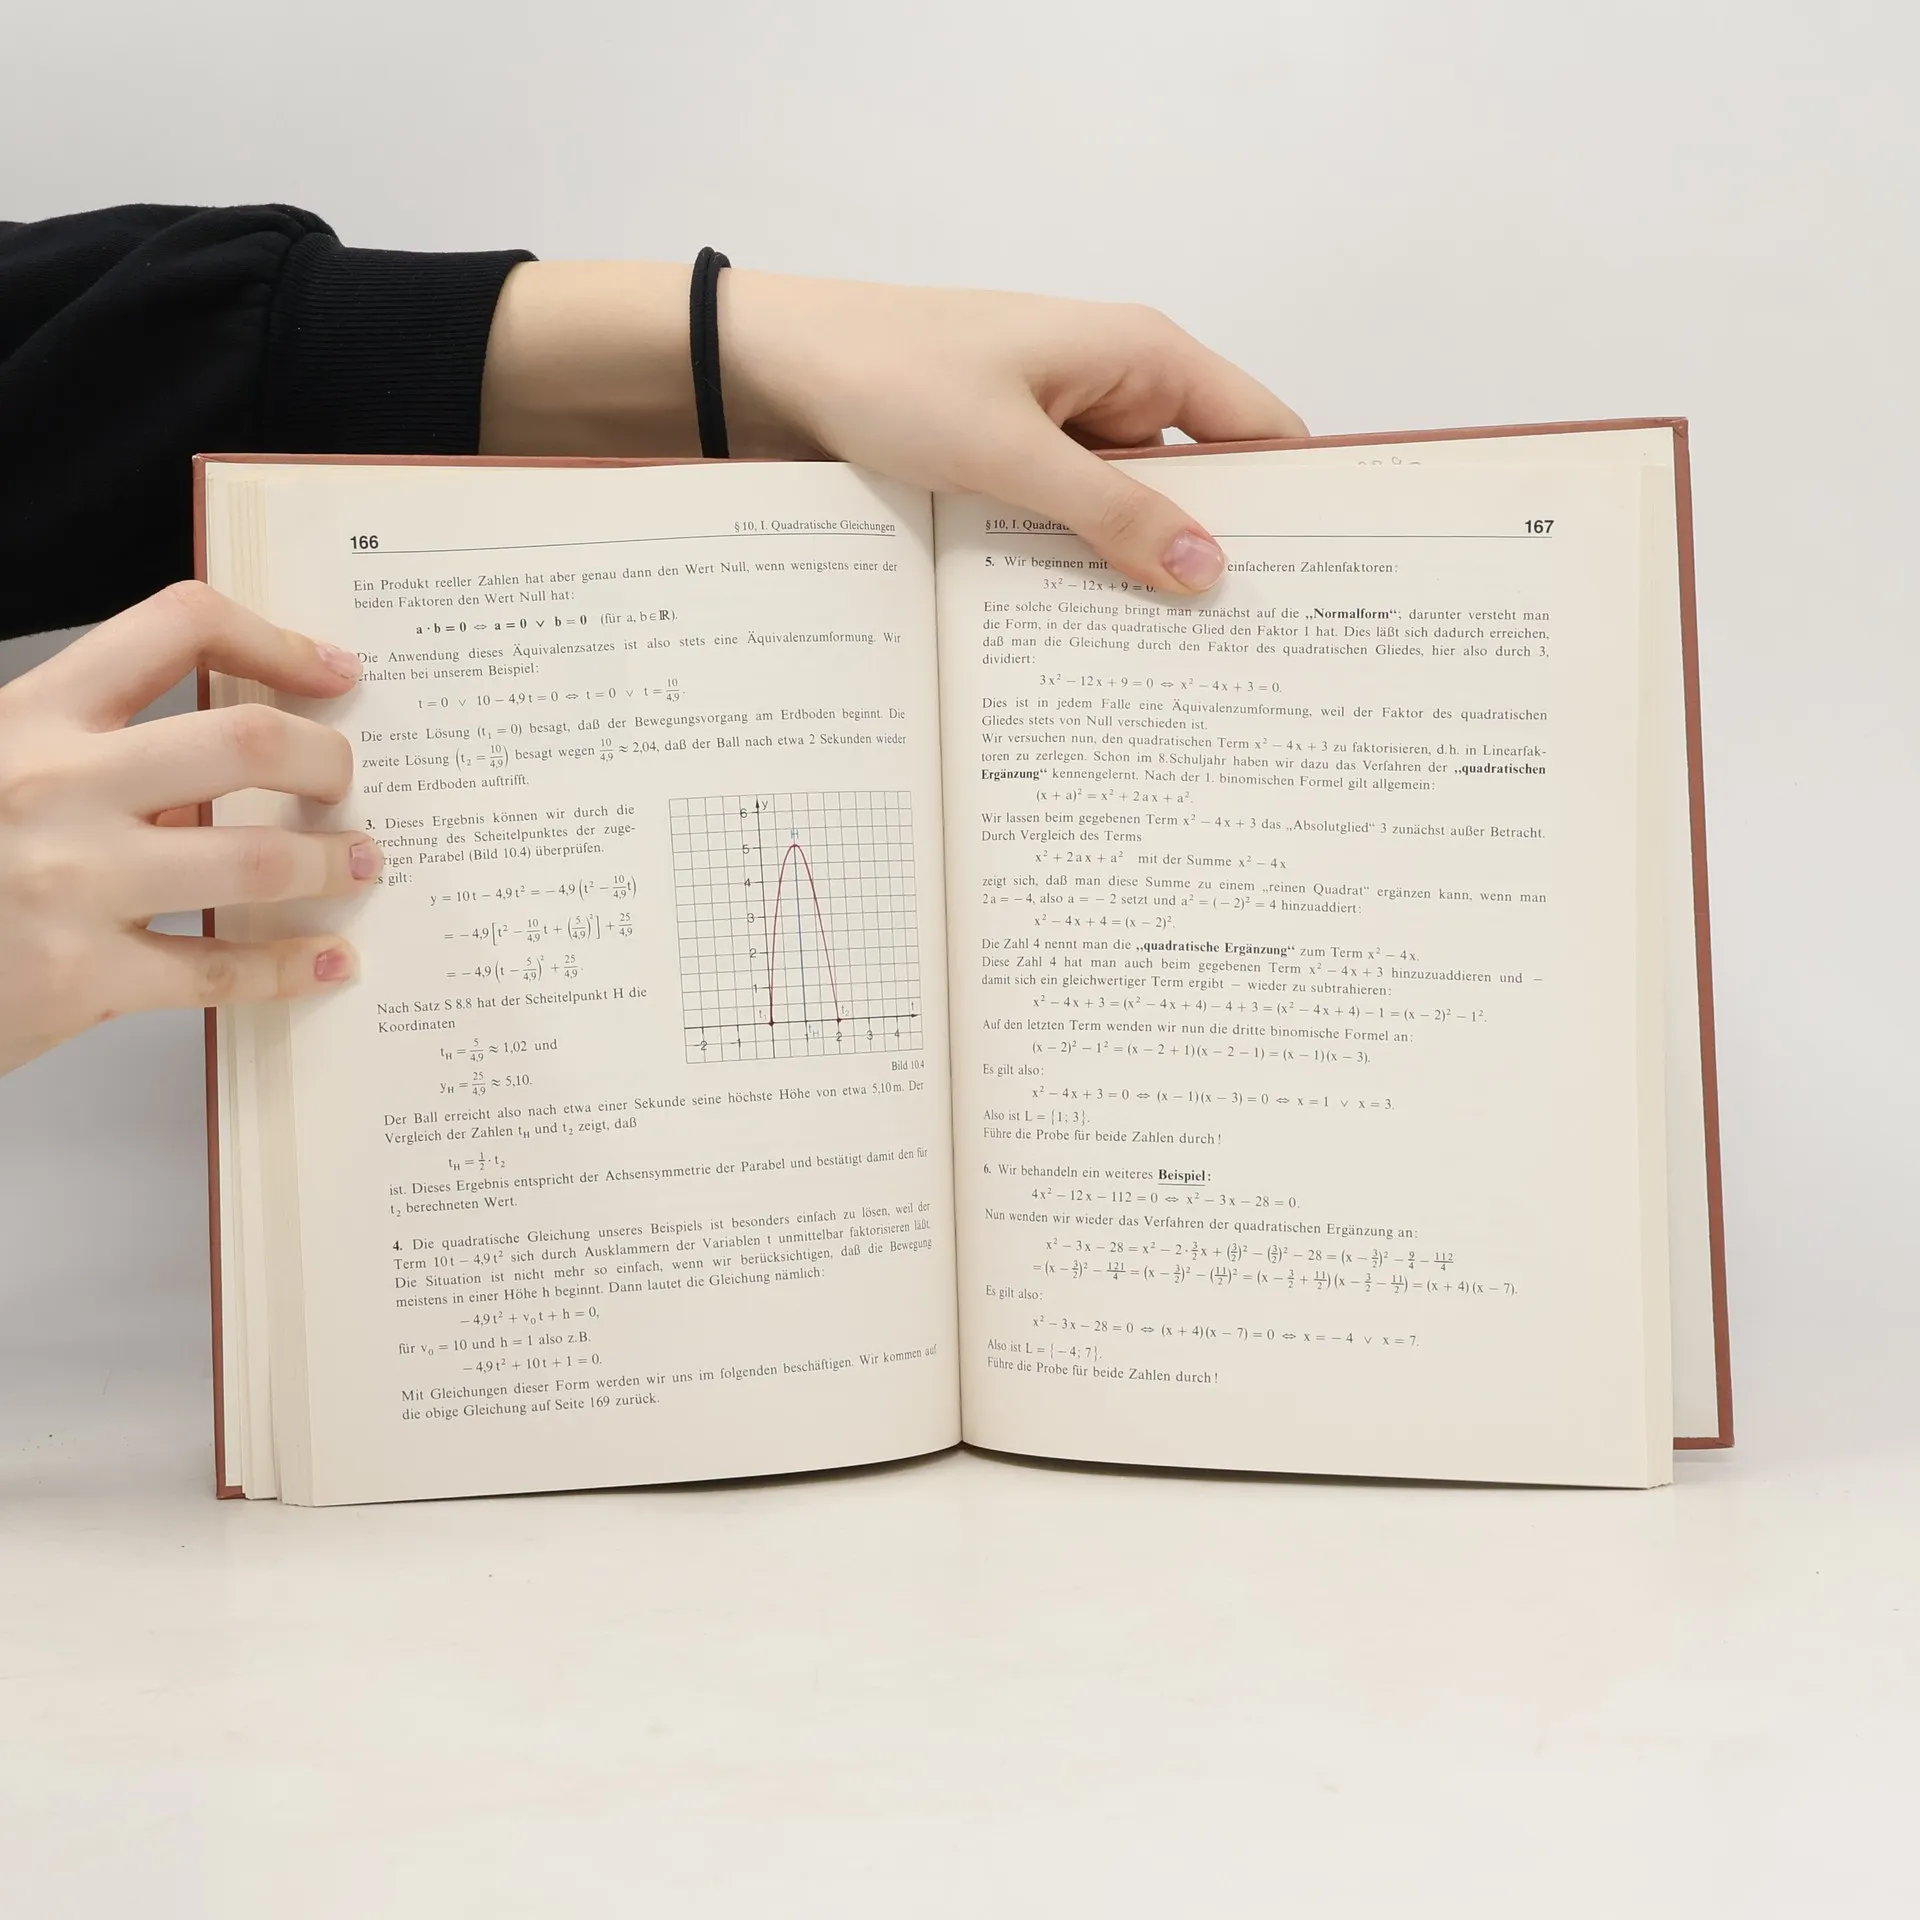 166
§ 10, I. Quadratische Gleichungen
Ein Produkt reeller Zahlen hat aber genau dann den Wert Null, wenn wenigstens einer der
beiden Faktoren den Wert Null hat:
a · b = 0 ⇔ a = 0 ∨ b = 0 (für a, b ∈ ℝ).
Die Anwendung dieses Äquivalenzsatzes ist also stets eine Äquivalenzumformung. Wir
erhalten bei unserem Beispiel:
t = 0 ∨ 10 − 4,9t = 0 ⇔ t = 0 ∨ t = 10/4,9.
Die erste Lösung (t₁ = 0) besagt, daß der Bewegungsvorgang am Erdboden beginnt. Die
zweite Lösung (t₂ = 10/4,9) besagt wegen 10/4,9 ≈ 2,04, daß der Ball nach etwa 2 Sekunden wieder
auf dem Erdboden auftrifft.
3. Dieses Ergebnis können wir durch die
erechnung des Scheitelpunktes der zuge-
rigen Parabel (Bild 10.4) überprüfen.
s gilt:
y = 10t − 4,9t² = − 4,9 (t² − 10/4,9 t)
= − 4,9 [t² − 10/4,9 t + (5/4,9)²] + 25/4,9
= − 4,9 (t − 5/4,9)² + 25/4,9.
Nach Satz S 8.8 hat der Scheitelpunkt H die
Koordinaten
t_H = 5/4,9 ≈ 1,02 und
y_H = 25/4,9 ≈ 5,10.
y
6
H
5
4
3
2
1
t₁
t₂
t
−2 −1 1 t_H 2 3 4
Bild 10.4
Der Ball erreicht also nach etwa einer Sekunde seine höchste Höhe von etwa 5,10 m. Der
Vergleich der Zahlen t_H und t₂ zeigt, daß
t_H = 1/2 · t₂
ist. Dieses Ergebnis entspricht der Achsensymmetrie der Parabel und bestätigt damit den für
t₂ berechneten Wert.
4. Die quadratische Gleichung unseres Beispiels ist besonders einfach zu lösen, weil der
Term 10t − 4,9t² sich durch Ausklammern der Variablen t unmittelbar faktorisieren läßt.
Die Situation ist nicht mehr so einfach, wenn wir berücksichtigen, daß die Bewegung
meistens in einer Höhe h beginnt. Dann lautet die Gleichung nämlich:
− 4,9t² + v₀t + h = 0,
für v₀ = 10 und h = 1 also z. B.
− 4,9t² + 10t + 1 = 0.
Mit Gleichungen dieser Form werden wir uns im folgenden beschäftigen. Wir kommen auf
die obige Gleichung auf Seite 169 zurück.
§ 10, I. Quadrat
167
5. Wir beginnen mit einfacheren Zahlenfaktoren:
3x² − 12x + 9 = 0.
Eine solche Gleichung bringt man zunächst auf die „Normalform“; darunter versteht man
die Form, in der das quadratische Glied den Faktor 1 hat. Dies läßt sich dadurch erreichen,
daß man die Gleichung durch den Faktor des quadratischen Gliedes, hier also durch 3,
dividiert:
3x² − 12x + 9 = 0 ⇔ x² − 4x + 3 = 0.
Dies ist in jedem Falle eine Äquivalenzumformung, weil der Faktor des quadratischen
Gliedes stets von Null verschieden ist.
Wir versuchen nun, den quadratischen Term x² − 4x + 3 zu faktorisieren, d. h. in Linearfak-
toren zu zerlegen. Schon im 8. Schuljahr haben wir dazu das Verfahren der „quadratischen
Ergänzung“ kennengelernt. Nach der 1. binomischen Formel gilt allgemein:
(x + a)² = x² + 2ax + a².
Wir lassen beim gegebenen Term x² − 4x + 3 das „Absolutglied“ 3 zunächst außer Betracht.
Durch Vergleich des Terms
x² + 2ax + a² mit der Summe x² − 4x
zeigt sich, daß man diese Summe zu einem „reinen Quadrat“ ergänzen kann, wenn man
2a = − 4, also a = − 2 setzt und a² = (− 2)² = 4 hinzuaddiert:
x² − 4x + 4 = (x − 2)².
Die Zahl 4 nennt man die „quadratische Ergänzung“ zum Term x² − 4x.
Diese Zahl 4 hat man auch beim gegebenen Term x² − 4x + 3 hinzuzuaddieren und −
damit sich ein gleichwertiger Term ergibt − wieder zu subtrahieren:
x² − 4x + 3 = (x² − 4x + 4) − 4 + 3 = (x² − 4x + 4) − 1 = (x − 2)² − 1².
Auf den letzten Term wenden wir nun die dritte binomische Formel an:
(x − 2)² − 1² = (x − 2 + 1)(x − 2 − 1) = (x − 1)(x − 3).
Es gilt also:
x² − 4x + 3 = 0 ⇔ (x − 1)(x − 3) = 0 ⇔ x = 1 ∨ x = 3.
Also ist L = {1; 3}.
Führe die Probe für beide Zahlen durch!
6. Wir behandeln ein weiteres Beispiel:
4x² − 12x − 112 = 0 ⇔ x² − 3x − 28 = 0.
Nun wenden wir wieder das Verfahren der quadratischen Ergänzung an:
x² − 3x − 28 = x² − 2 · 3/2 x + (3/2)² − (3/2)² − 28 = (x − 3/2)² − 9/4 − 112/4
= (x − 3/2)² − 121/4 = (x − 3/2)² − (11/2)² = (x − 3/2 + 11/2)(x − 3/2 − 11/2) = (x + 4)(x − 7).
Es gilt also:
x² − 3x − 28 = 0 ⇔ (x + 4)(x − 7) = 0 ⇔ x = − 4 ∨ x = 7.
Also ist L = {− 4; 7}.
Führe die Probe für beide Zahlen durch!